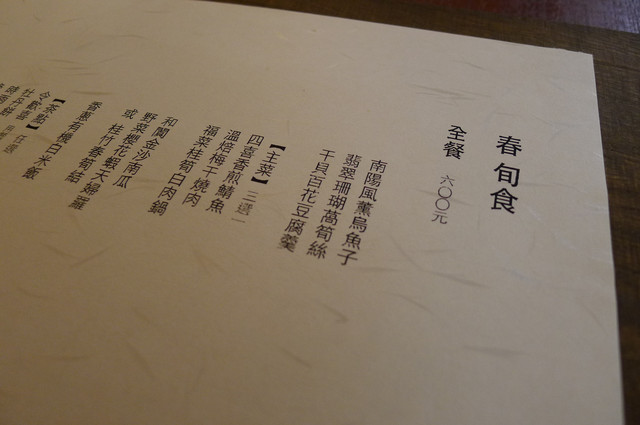 春旬食
全餐 六〇〇元
南陽風薰烏魚子
翡翠珊瑚萵筍絲
干貝百花豆腐羹
【主菜】三選一
四喜香煎鯖魚
溫焙梅干燒肉
福菜桂筍白肉鍋
和閑金沙南瓜
野菜櫻花蝦天婦羅
或 桂竹春筍結
香蔥有機白米飯
【茶點】